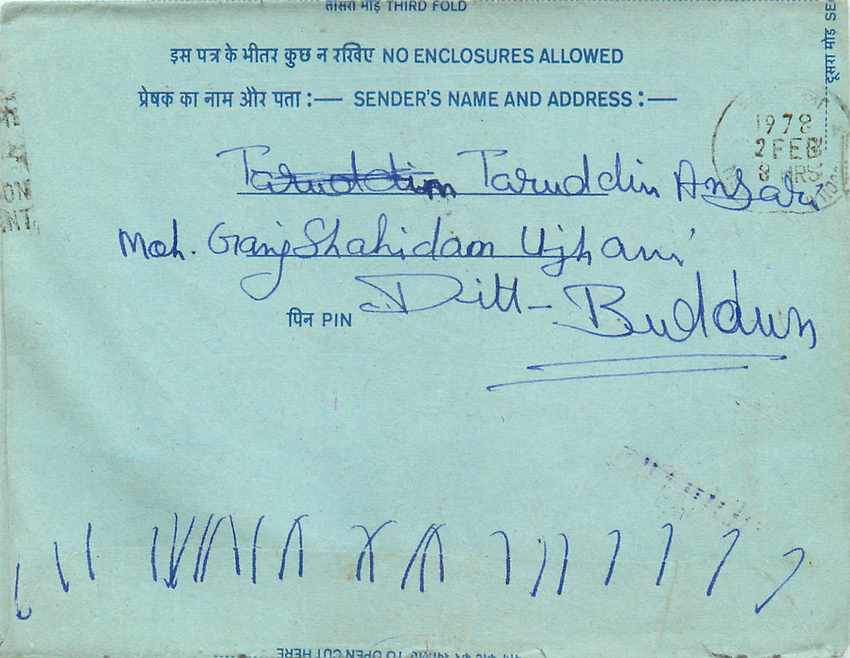 तीसरा मोड़ THIRD FOLD
दूसरा मोड़
इस पत्र के भीतर कुछ न रखिए NO ENCLOSURES ALLOWED
प्रेषक का नाम और पता :— SENDER'S NAME AND ADDRESS :—
1978
2 FEB
8 HRS
Taruddin Taruddin Ansari
Moh. Ganj Shahidan Ujhani
Ditt - Buddun
पिन PIN
TO OPEN CUT HERE